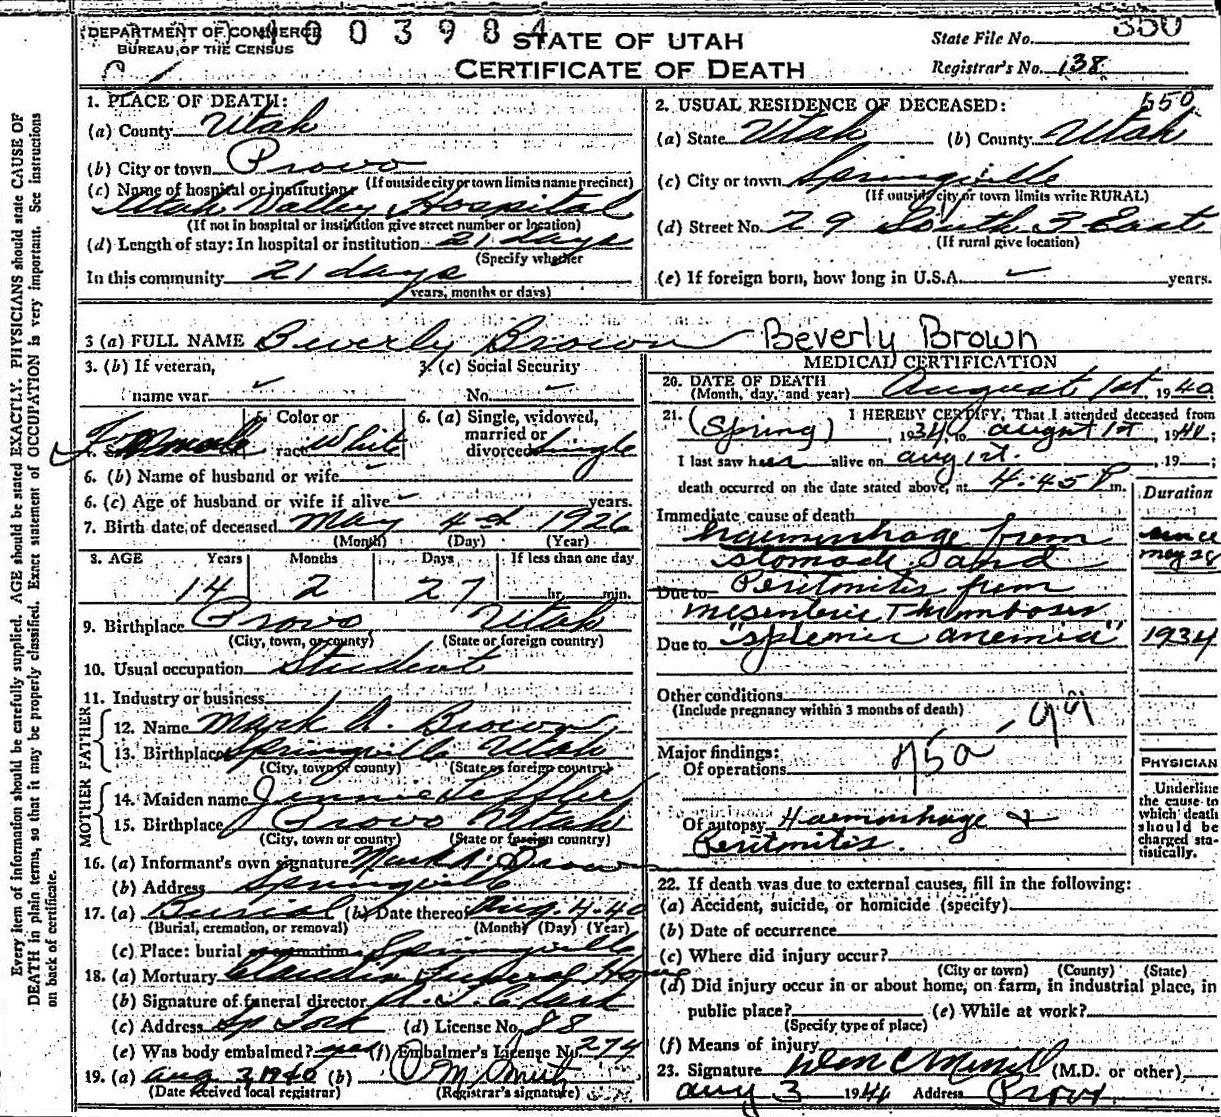 DEPARTMENT OF COMMERCE
BUREAU OF THE CENSUS
4003984
STATE OF UTAH
CERTIFICATE OF DEATH
State File No. 350
Registrar's No. 138
Every item of information should be carefully supplied. AGE should be stated EXACTLY. PHYSICIANS should state CAUSE OF
DEATH in plain terms, so that it may be properly classified. Exact statement of OCCUPATION is very important. See instructions
on back of certificate.
1. PLACE OF DEATH:
(a) County Utah
(b) City or town Provo
(If outside city or town limits name precinct)
(c) Name of hospital or institution:
Utah Valley Hospital
(If not in hospital or institution give street number or location)
(d) Length of stay: In hospital or institution 21 days
(Specify whether
In this community 21 days
years, months or days)
2. USUAL RESIDENCE OF DECEASED: 550
(a) State Utah (b) County Utah
(c) City or town Springville
(If outside city or town limits write RURAL)
(d) Street No. 29 South 3 East
(If rural give location)
(e) If foreign born, how long in U.S.A. years.
3 (a) FULL NAME Beverly Brown Beverly Brown
3. (b) If veteran,
name war
3. (c) Social Security
No.
4. Sex Female 5. Color or
race White
6. (a) Single, widowed,
married or
divorced Single
6. (b) Name of husband or wife
6. (c) Age of husband or wife if alive years.
7. Birth date of deceased May 4th 1926
(Month) (Day) (Year)
8. AGE Years Months Days If less than one day
14 2 27 hr. min.
9. Birthplace Provo Utah
(City, town, or county) (State or foreign country)
10. Usual occupation Student
11. Industry or business
FATHER
12. Name Mark A. Brown
13. Birthplace Springville Utah
(City, town or county) (State or foreign country)
MOTHER
14. Maiden name Jennie
15. Birthplace Provo Utah
(City, town or county) (State or foreign country)
16. (a) Informant's own signature Mark A. Brown
(b) Address Springville
17. (a) Burial (b) Date thereof Aug. 4. 40
(Burial, cremation, or removal) (Month) (Day) (Year)
(c) Place: burial or cremation Springville
18. (a) Mortuary Claudin Funeral Home
(b) Signature of funeral director A. Y. Clark
(c) Address Sp Fork (d) License No. 88
(e) Was body embalmed? yes (f) Embalmer's License No. 274
19. (a) Aug 3 1940 (b)
(Date received local registrar) (Registrar's signature)
MEDICAL CERTIFICATION
20. DATE OF DEATH
(Month, day, and year) August 1st, 1940
21. I HEREBY CERTIFY, That I attended deceased from
(Spring) 1934, to August 1st, 1940;
I last saw her alive on Aug 1st, 19 ;
death occurred on the date stated above, at 4:45 P m.
Duration
Immediate cause of death
haemorrhage from since
stomach and May 28
Due to Peritonitis from
mesenteric Thrombosis
Due to "splenic anemia" 1934
Other conditions
(Include pregnancy within 3 months of death)
Major findings:
Of operations
Of autopsy Haemorrhage +
Peritonitis.
PHYSICIAN
Underline
the cause to
which death
should be
charged sta-
tistically.
22. If death was due to external causes, fill in the following:
(a) Accident, suicide, or homicide (specify)
(b) Date of occurrence
(c) Where did injury occur?
(City or town) (County) (State)
(d) Did injury occur in or about home, on farm, in industrial place, in
public place? (e) While at work?
(Specify type of place)
(f) Means of injury
23. Signature (M.D. or other)
Aug 3 1940 Address Provo